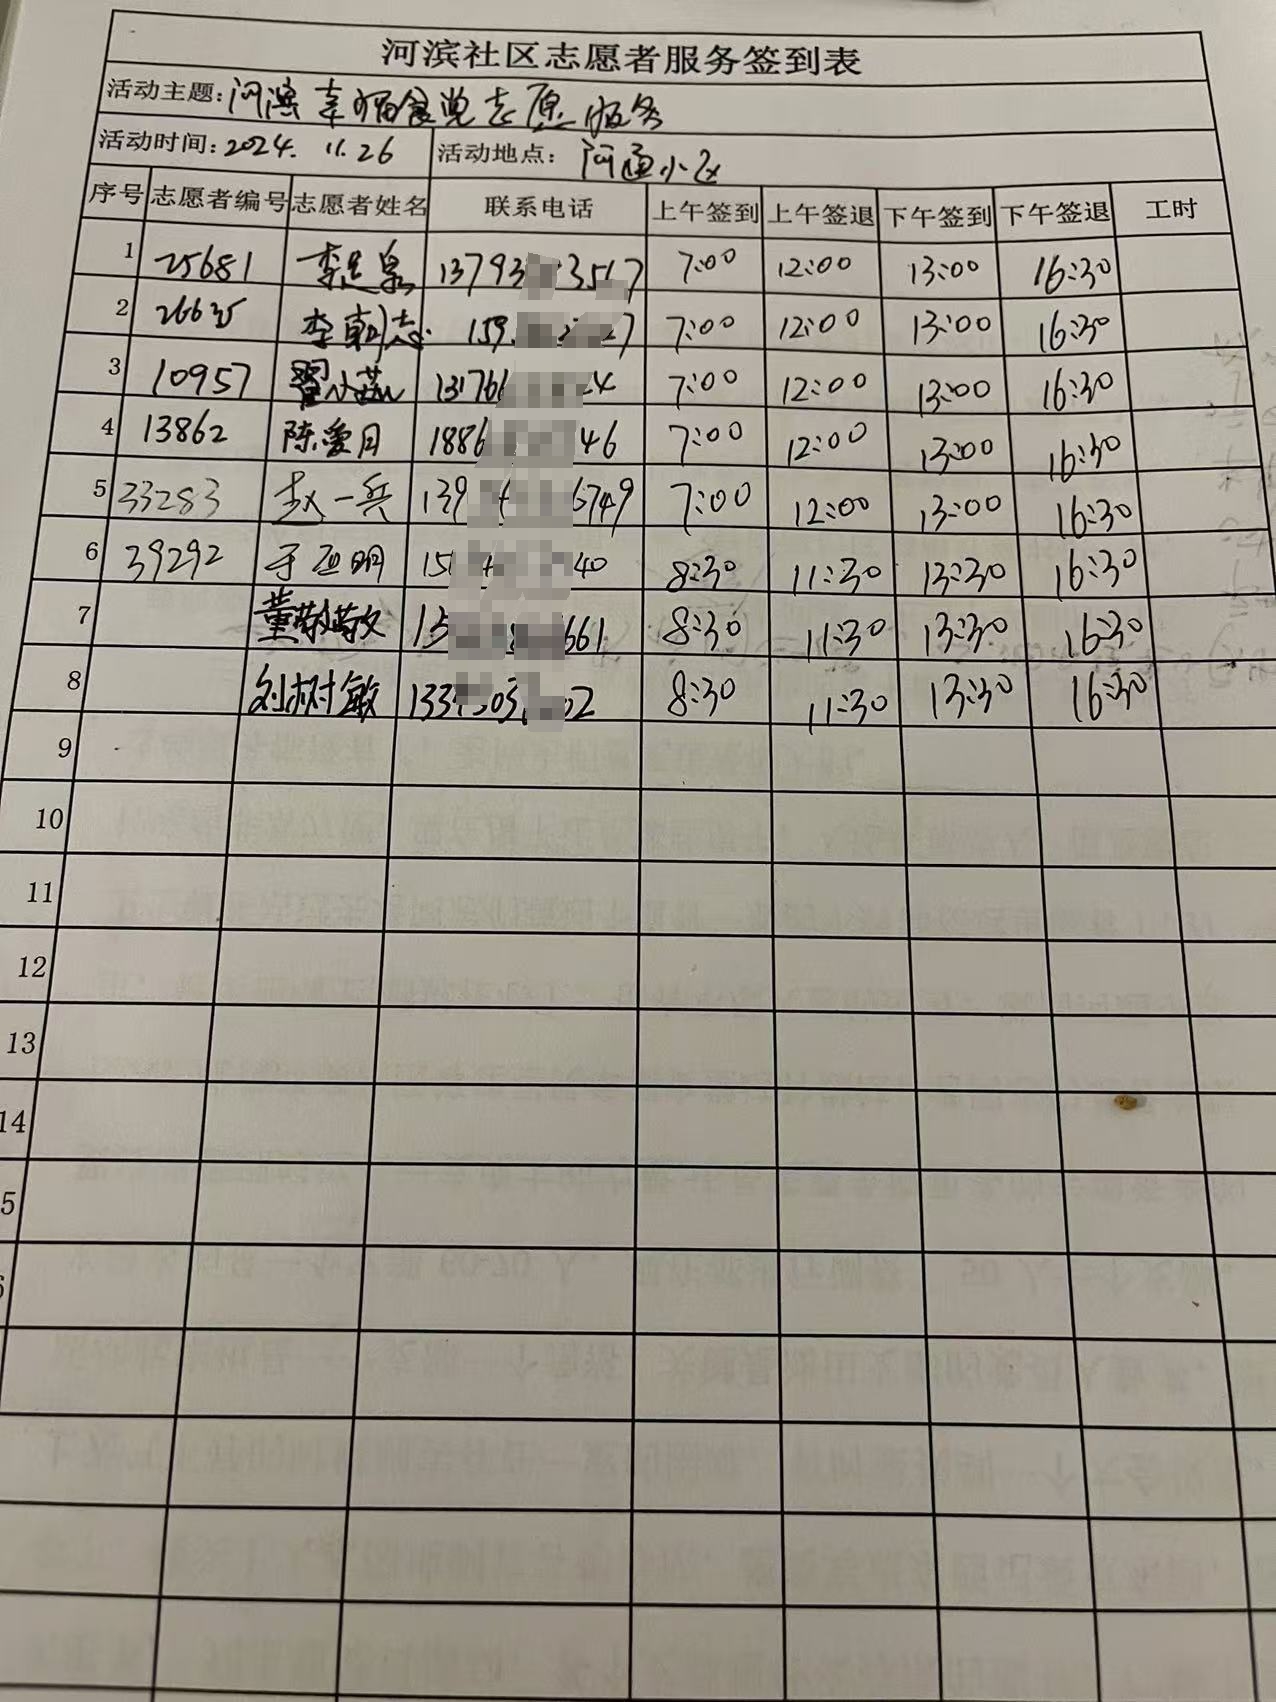 河滨社区志愿者服务签到表
活动主题：河滨幸福食堂志愿服务
活动时间：2024. 11.26 活动地点： 河通小区
序号 志愿者编号 志愿者姓名 联系电话 上午签到 上午签退 下午签到 下午签退 工时
1 25681 13793 3517 7:00 12:00 13:00 16:30
2 26635 李朝志 159 27 7:00 12:00 13:00 16:30
3 10957 翟小燕 13176 24 7:00 12:00 13:00 16:30
4 13862 陈爱月 1886 46 7:00 12:00 13:00 16:30
5 33283 赵一兵 139 6749 7:00 12:00 13:00 16:30
6 39292 15 40 8:30 11:30 13:30 16:30
7 董敬敏 15 661 8:30 11:30 13:30 16:30
8 刘树敏 133 02 8:30 11:30 13:30 16:30
9
10
11
12
13
14
5